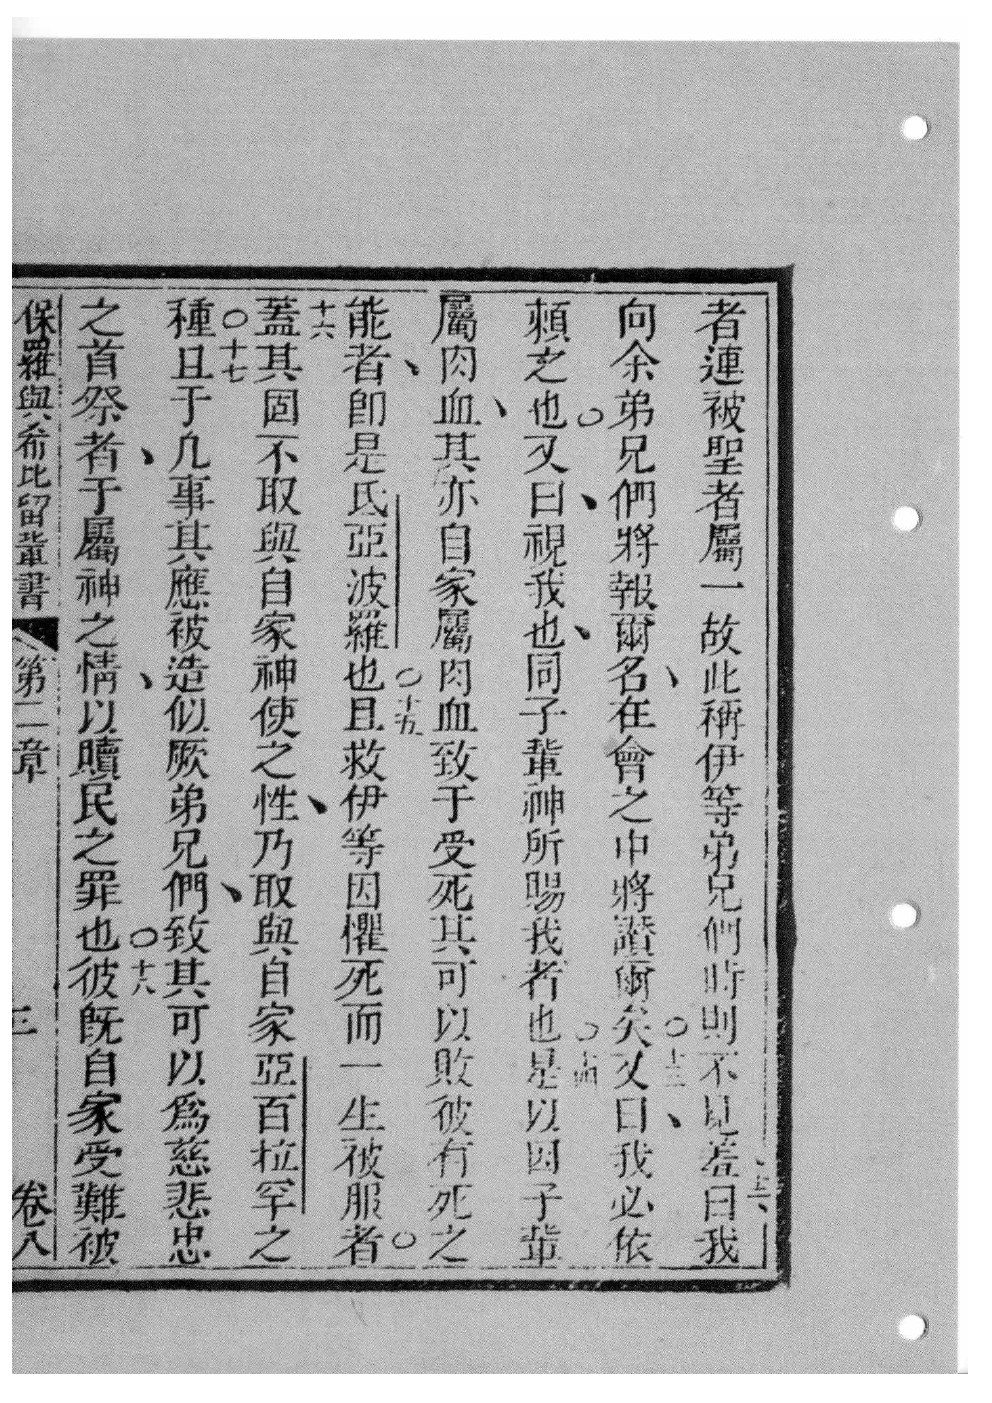 者連被聖者屬一故此稱伊等弟兄們時則不見羞曰我
十二
向余弟兄們將報爾名在會之中將讚爾矣又曰我必依
十三
賴之也又曰視我也同子輩神所賜我者也是以因子輩
十四
屬肉血其亦自家屬肉血致于受死其可以敗彼有死之
能者即是氐亞波羅也且救伊等因懼死而一生被服者
十五
十六
蓋其固不取與自家神使之性乃取與自家亞百拉罕之
十七
種且于凡事其應被造似厥弟兄們致其可以為慈悲忠
之首祭者于屬神之情以贖民之罪也彼既自家受難被
十八
保羅與希比留輩書 第二章 三 卷八